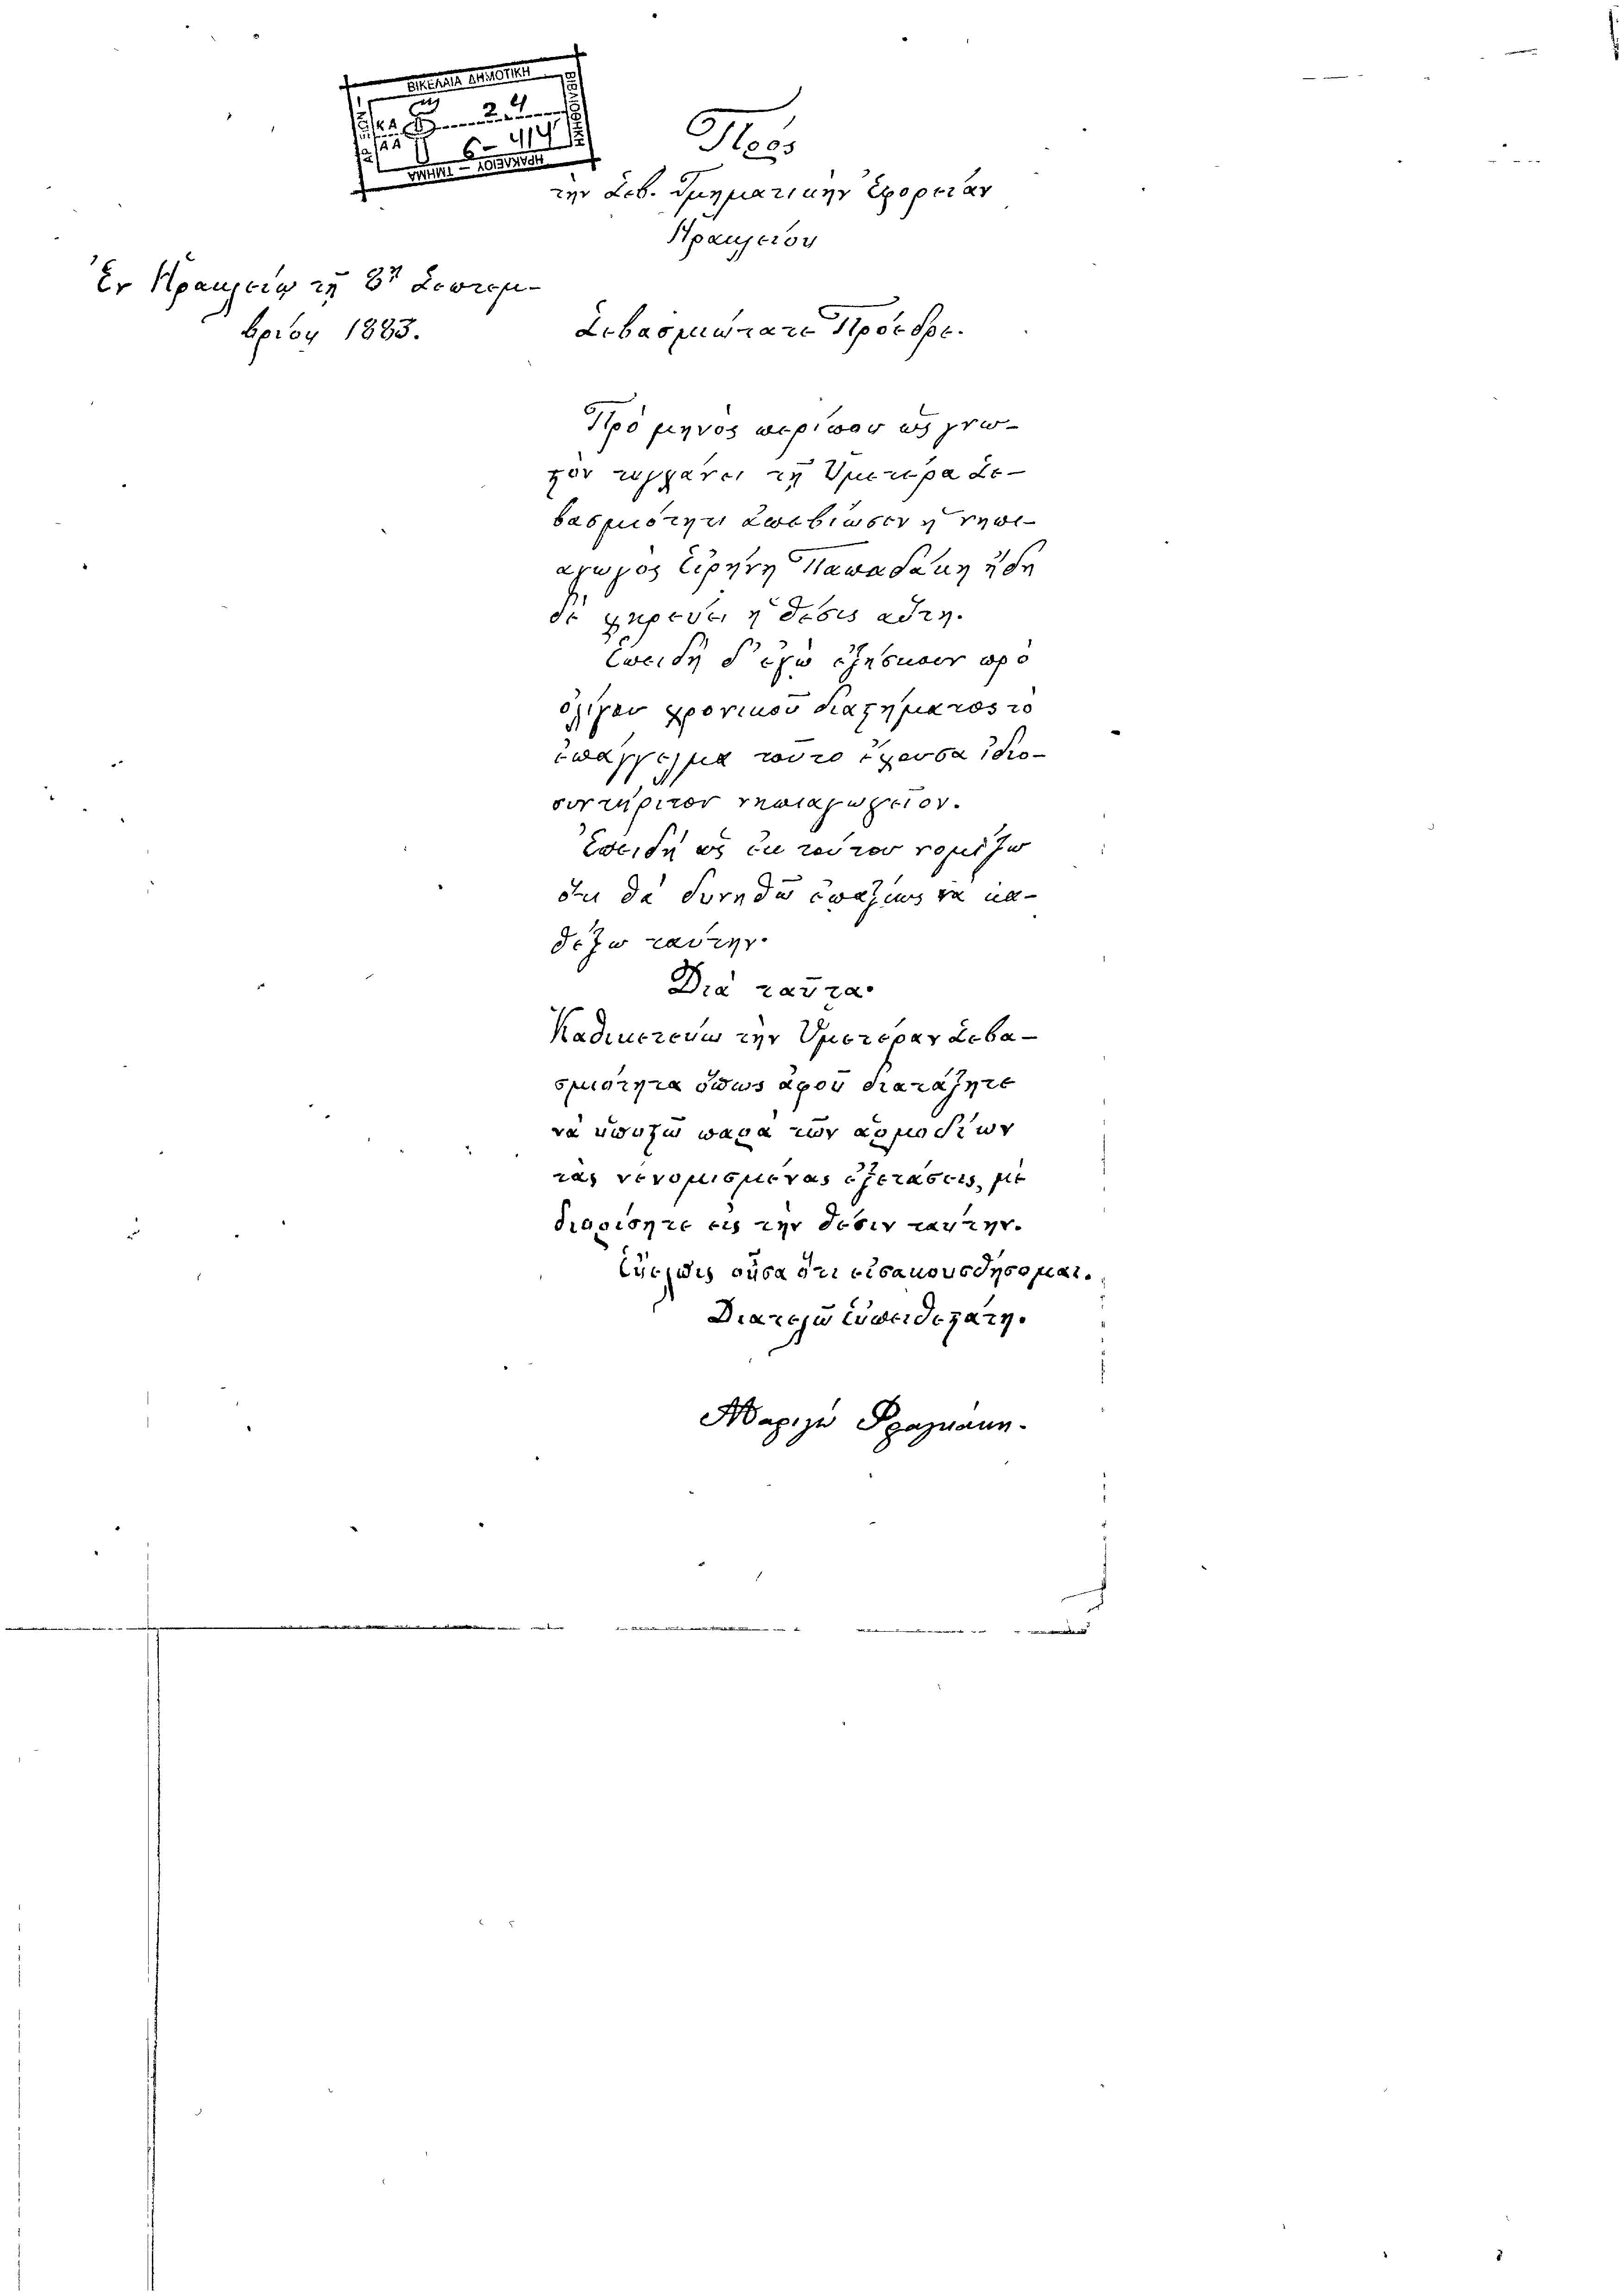 ΒΙΚΕΛΑΙΑ ΔΗΜΟΤΙΚΗ
24
6-414
ΗΡΑΚΛΕΙΟΥ - ΤΜΗΜΑ
Πρὸς
τὴν Σεβ. Τμηματικὴν Ἐφορείαν
Ἡρακλείου
Ἐν Ἡρακλείῳ τῇ 8ῃ Σεπτεμ-
βρίου 1883.
Σεβασμιώτατε Πρόεδρε.
Πρὸ μηνὸς περίπου ὡς γνω-
στὸν τυγχάνει τῇ Ὑμετέρᾳ Σε-
βασμιότητι ἀπεβίωσεν ἡ νηπι-
αγωγὸς Εἰρήνη Παπαδάκη ἤδη
δὲ χηρεύει ἡ θέσις αὕτη.
Ἐπειδὴ δ' ἐγὼ ἐξήσκουν πρὸ
ὀλίγου χρονικοῦ διαστήματος τὸ
ἐπάγγελμα τοῦτο ἔχουσα ἰδιο-
συντήρητον νηπιαγωγεῖον.
Ἐπειδὴ ὡς ἐκ τούτου νομίζω
ὅτι θὰ δυνηθῶ ἐπαξίως νὰ κα-
θέξω ταύτην.
Διὰ ταῦτα.
Καθικετεύω τὴν Ὑμετέραν Σεβα-
σμιότητα ὅπως ἀφοῦ διατάξητε
νὰ ὑποστῶ παρὰ τῶν ἁρμοδίων
τὰς νενομισμένας ἐξετάσεις, μὲ
διορίσητε εἰς τὴν θέσιν ταύτην.
Εὔελπις οὖσα ὅτι εἰσακουσθήσομαι.
Διατελῶ εὐπειθεστάτη.